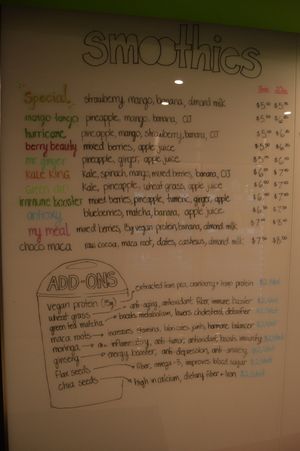 smoothies
Special strawberry, mango, banana, almond milk $5.00 $6.00
mango tango pineapple, mango, banana, OJ $5.00 $6.00
hurricane pineapple, mango, strawberry, banana, OJ $5.00 $6.00
berry beauty mixed berries, apple juice $5.00 $6.00
mr ginger pineapple, ginger, apple juice $5.00 $6.00
kale king Kale, spinach, mango, mixed berries, banana, OJ $6.00 $7.00
green Kale, pineapple, wheat grass, apple juice $6.00 $7.00
immune booster mixed berries, pineapple, turmeric, ginger, apple $6.00 $7.00
antioxy blueberries, matcha, banana, apple juice $6.00 $7.00
my meal mixed berries, 15g vegan protein, banana, almond milk $7.00 $8.00
choco maca raw cocoa, maca root, dates, cashews, almond milk $7.00 $8.00
ADD-ONS
vegan protein (15g) extracted from pea, cranberry + hemp protein
wheat grass anti-aging, antioxidant, fiber, immune booster
green tea matcha boosts metabolism, lowers cholesterol, detoxifier
maca roots increases stamina, lubricates joints, hormone balancer
moringa anti inflammatory, anti-tumor, antioxidant, boosts immunity
ginseng energy booster, anti-depression, anti-anxiety
flax seeds fiber, omega-3, improves blood sugar
chia seeds high in calcium, dietary fiber + iron